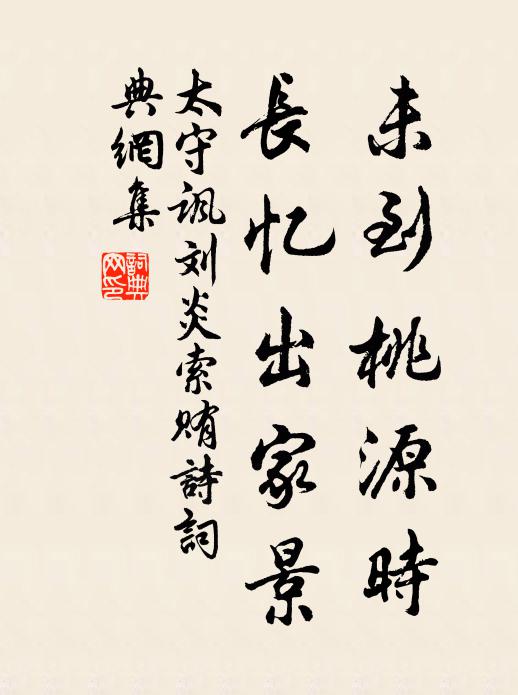 未到桃源時
長忆出家景
太守讽刘炎索賄詩詞
典網集
詞典
网印